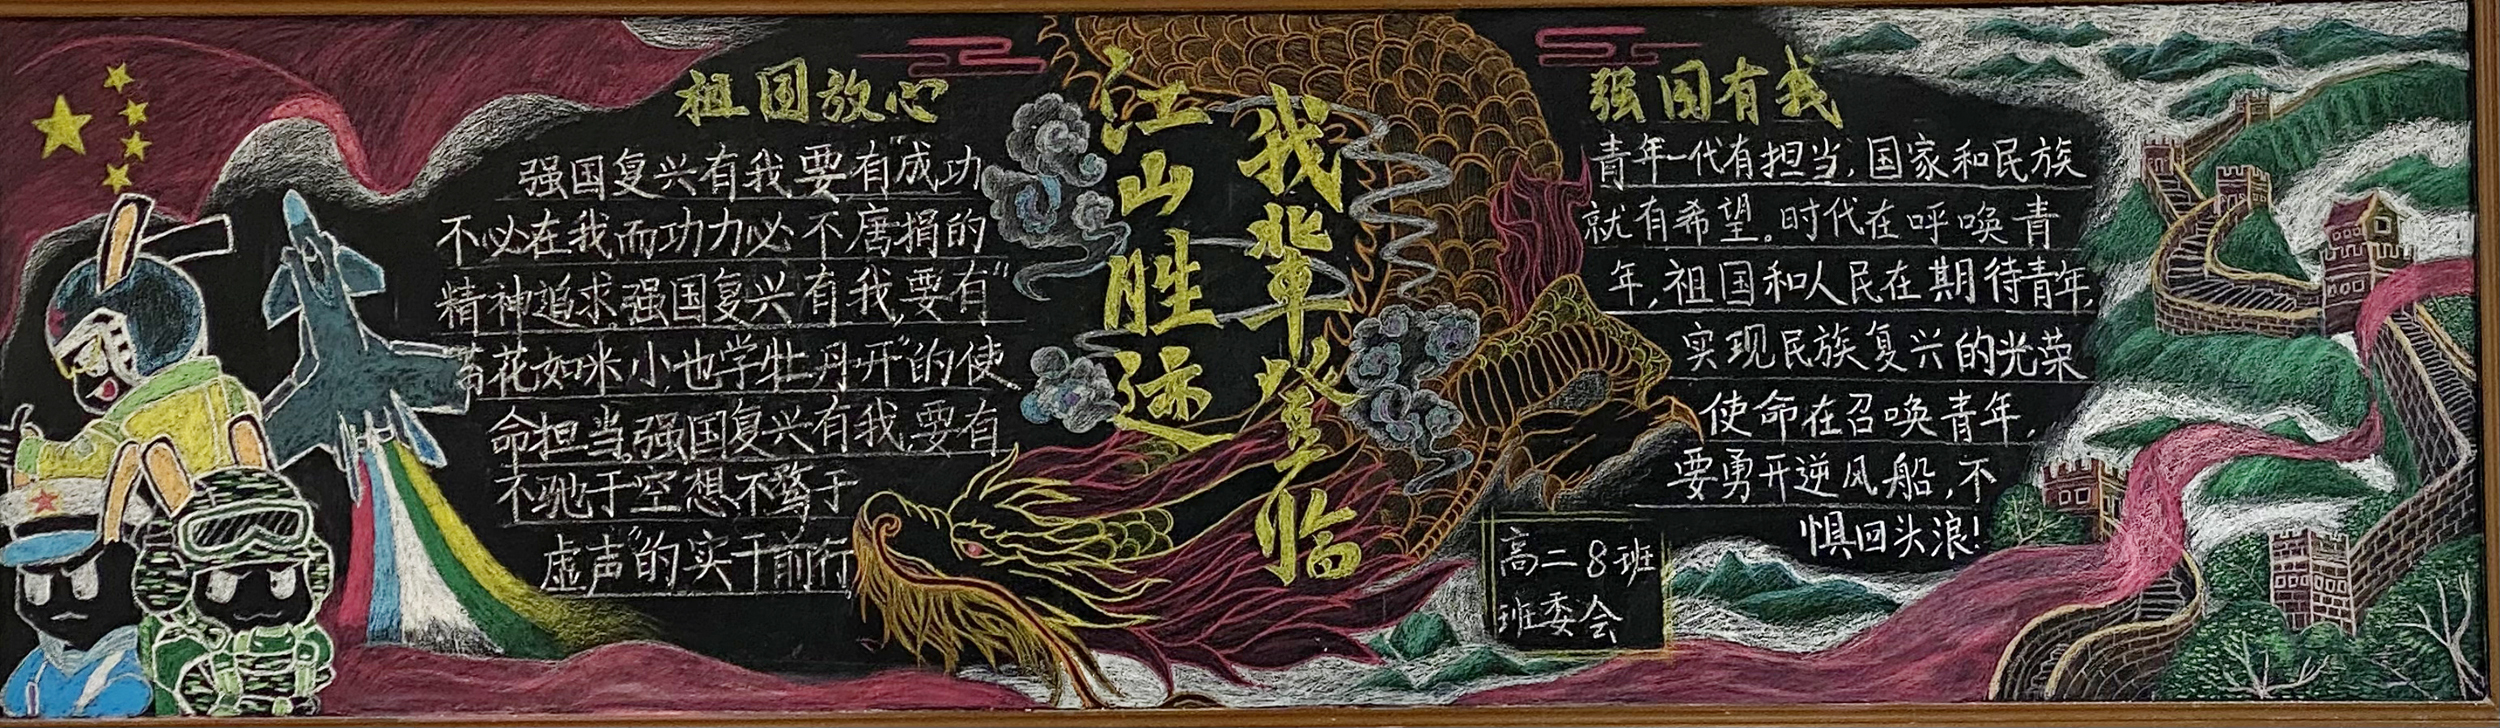 祖国放心
强国复兴有我要有"成功
不必在我而功力必不唐捐的
精神追求.强国复兴有我,要有"
苔花如米小也学牡丹开"的使
命担当.强国复兴有我,要有
不驰于空想,不骛于
虚声"的实干前行
江山胜迹
我辈登临
强国有我
青年一代有担当,国家和民族
就有希望。时代在呼唤青
年,祖国和人民在期待青年,
实现民族复兴的光荣
使命在召唤青年,
要勇开逆风船,不
惧回头浪!
高二8班
班委会